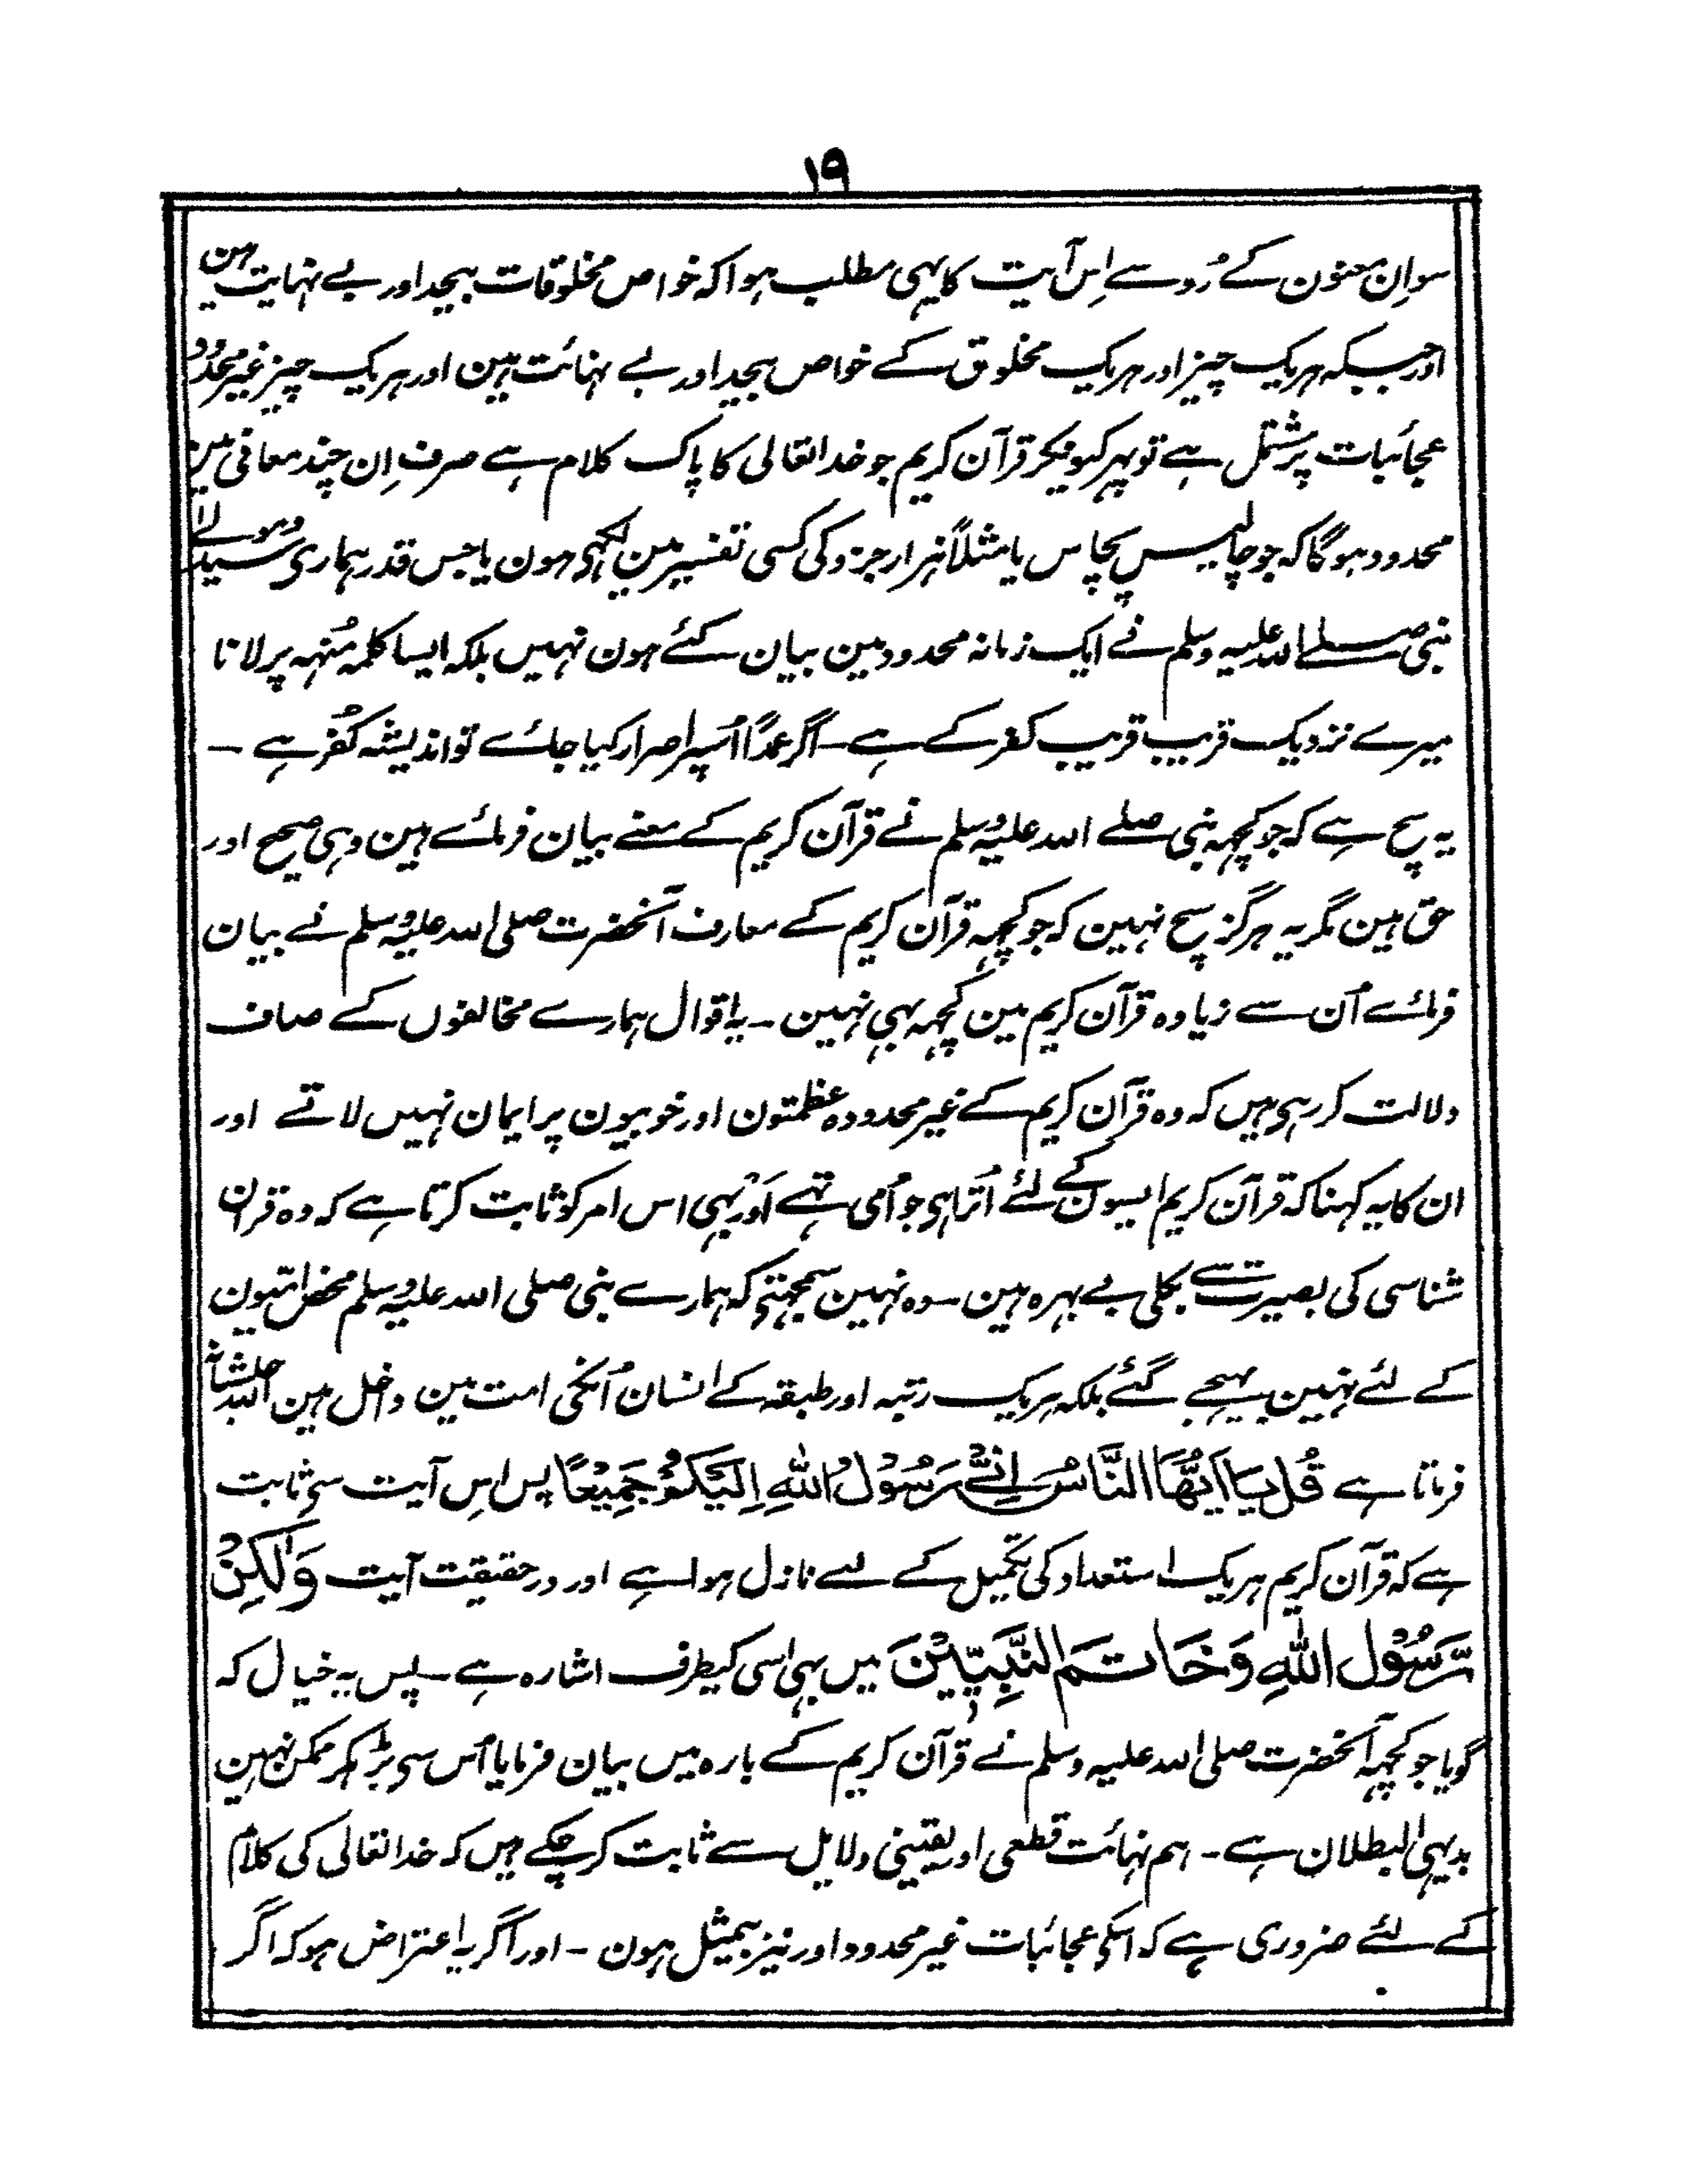 ۱۹
سو ان معنون کے رُو سے اِس آیت کا یہی مطلب ہوا کہ خواص مخلوقات بیحد اور بے نہایت ہین
اور جبکہ ہریک چیز اور ہریک مخلوق کے خواص بیحد اور بے نہائت ہین اور ہریک چیز غیر محدود
عجائبات پر مشتمل ہے تو پہر کیونکر قرآن کریم جو خدا تعالی کا پاک کلام ہے صرف اِن چند معانی مین
محدود ہوگا کہ جو چالیس پچاس یا مثلاً ہزار جزو کی کسی تفسیر مین لکہی ہون یا جس قدر ہماری سید و مولے
نبی صلے اللہ علیہ وسلم نے ایک زمانہ محدود مین بیان کئے ہون نہیں بلکہ ایسا کلمہ مُنہہ پر لانا
میرے نزدیک قریب قریب کفر کے ہے ــ اگر عمدًا اُسپر اصرار کیا جائے تو اندیشہ کُفر ہے ــ
یہ سچ ہے کہ جو کچہہ نبی صلے اللہ علیہ وسلم نے قرآن کریم کے معنے بیان فرمائے ہین وہی صحیح اور
حق ہین مگر یہ ہرگز سچ نہین کہ جو کچہہ قرآن کریم کے معارف آنحضرت صلی اللہ علیہ وسلم نے بیان
فرمائے اُن سے زیادہ قرآن کریم مین کچہہ بہی نہین ــ یہ اقوال ہمارے مخالفوں کے صاف
دلالت کر رہی ہیں کہ وہ قرآن کریم کے غیر محدودہ عظمتون اور خوبیون پر ایمان نہیں لاتے اور
ان کا یہ کہنا کہ قرآن کریم ایسون کے لئے اُترا ہی جو اُمی تہے اَوْر بہی اس امر کو ثابت کرتا ہے کہ وہ قران
شناسی کی بصیرت سے بکلی بے بہرہ ہین ــ وہ نہین سمجہتی کہ ہمارے نبی صلی اللہ علیہ وسلم محض امّیون
کے لئے نہین بہیجے گئے بلکہ ہریک رتبہ اور طبقہ کے انسان اُنکی امت مین داخل ہین اللہ جلشانہ
فرماتا ہے قُلْ يَا اَيُّهَا النَّاسُ اِنِّيْ رَسُوْلُ اللّٰهِ اِلَيْكُمْ جَمِيْعًا پس اِس آیت سی ثابت
ہے کہ قرآن کریم ہریک استعداد کی تکمیل کے لیے نازل ہوا ہے اور درحقیقت آیت وَلٰكِنْ
رَّسُوْلَ اللّٰهِ وَخَاتَمَ النَّبِيّٖنَ میں بہی اسی کیطرف اشارہ ہے ــ پس یہ خیال کہ
گویا جو کچہہ آنحضرت صلی اللہ علیہ وسلم نے قرآن کریم کے بارہ میں بیان فرمایا اُس سی بڑہکر ممکن نہین
بدیہی البطلان ہے ــ ہم نہائت قطعی اور یقینی دلایل سے ثابت کر چکے ہیں کہ خدا تعالی کی کلام
کے لئے ضروری ہے کہ اسکی عجائبات غیر محدود اور نیز بیمثیل ہون ــ اور اگر یہ اعتراض ہو کہ اگر